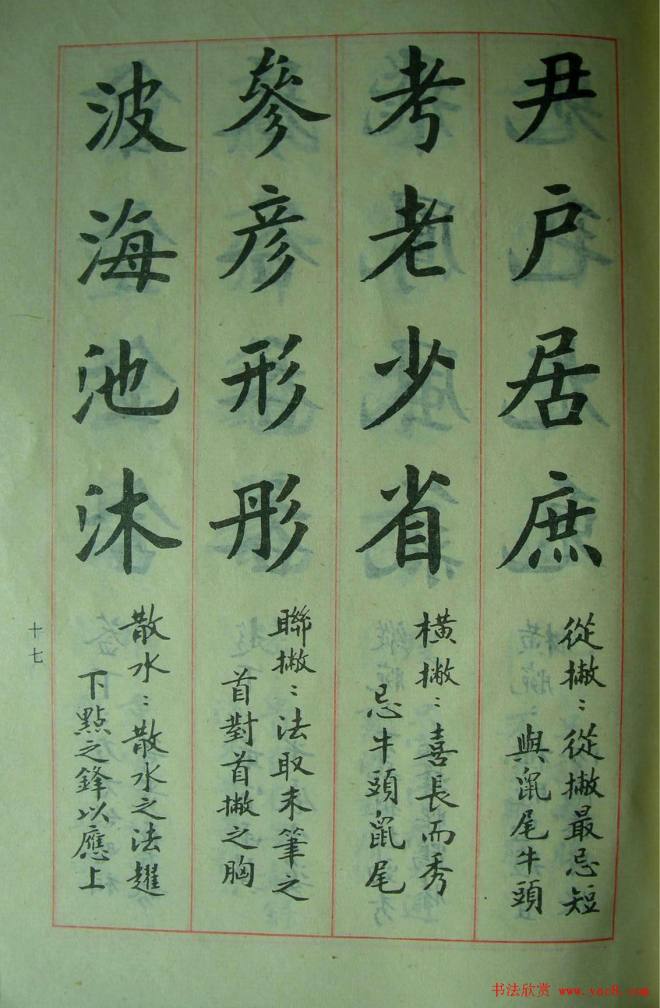 尹户居庶
從撇：從撇最忌短
與鼠尾牛頭
考老少省
橫撇：喜長而秀
忌牛頭鼠尾
參彦形彤
聯撇：法取末筆之
首對首撇之胸
波海池沐
散水：散水之法趯
下點之鋒以應上
十七
书法欣赏 www.yac8.com